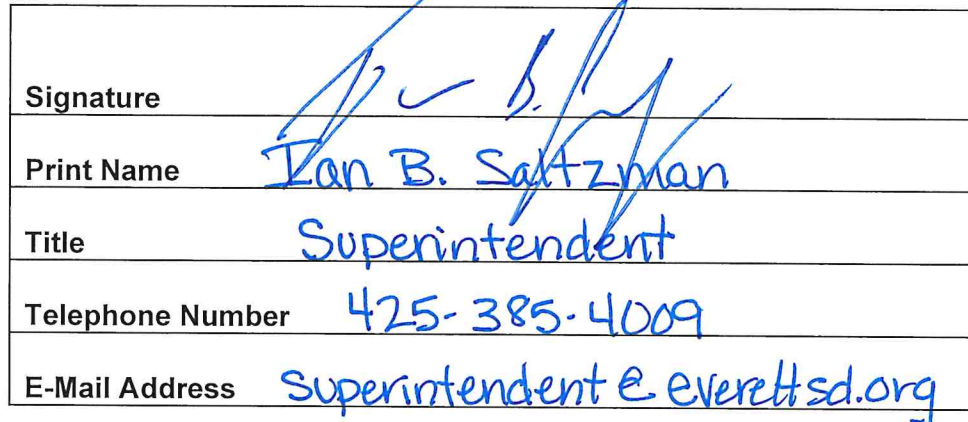 Signature
Print Name Ian B. Saltzman
Title Superintendent
Telephone Number 425-385-4009
E-Mail Address Superintendent@everettsd.org